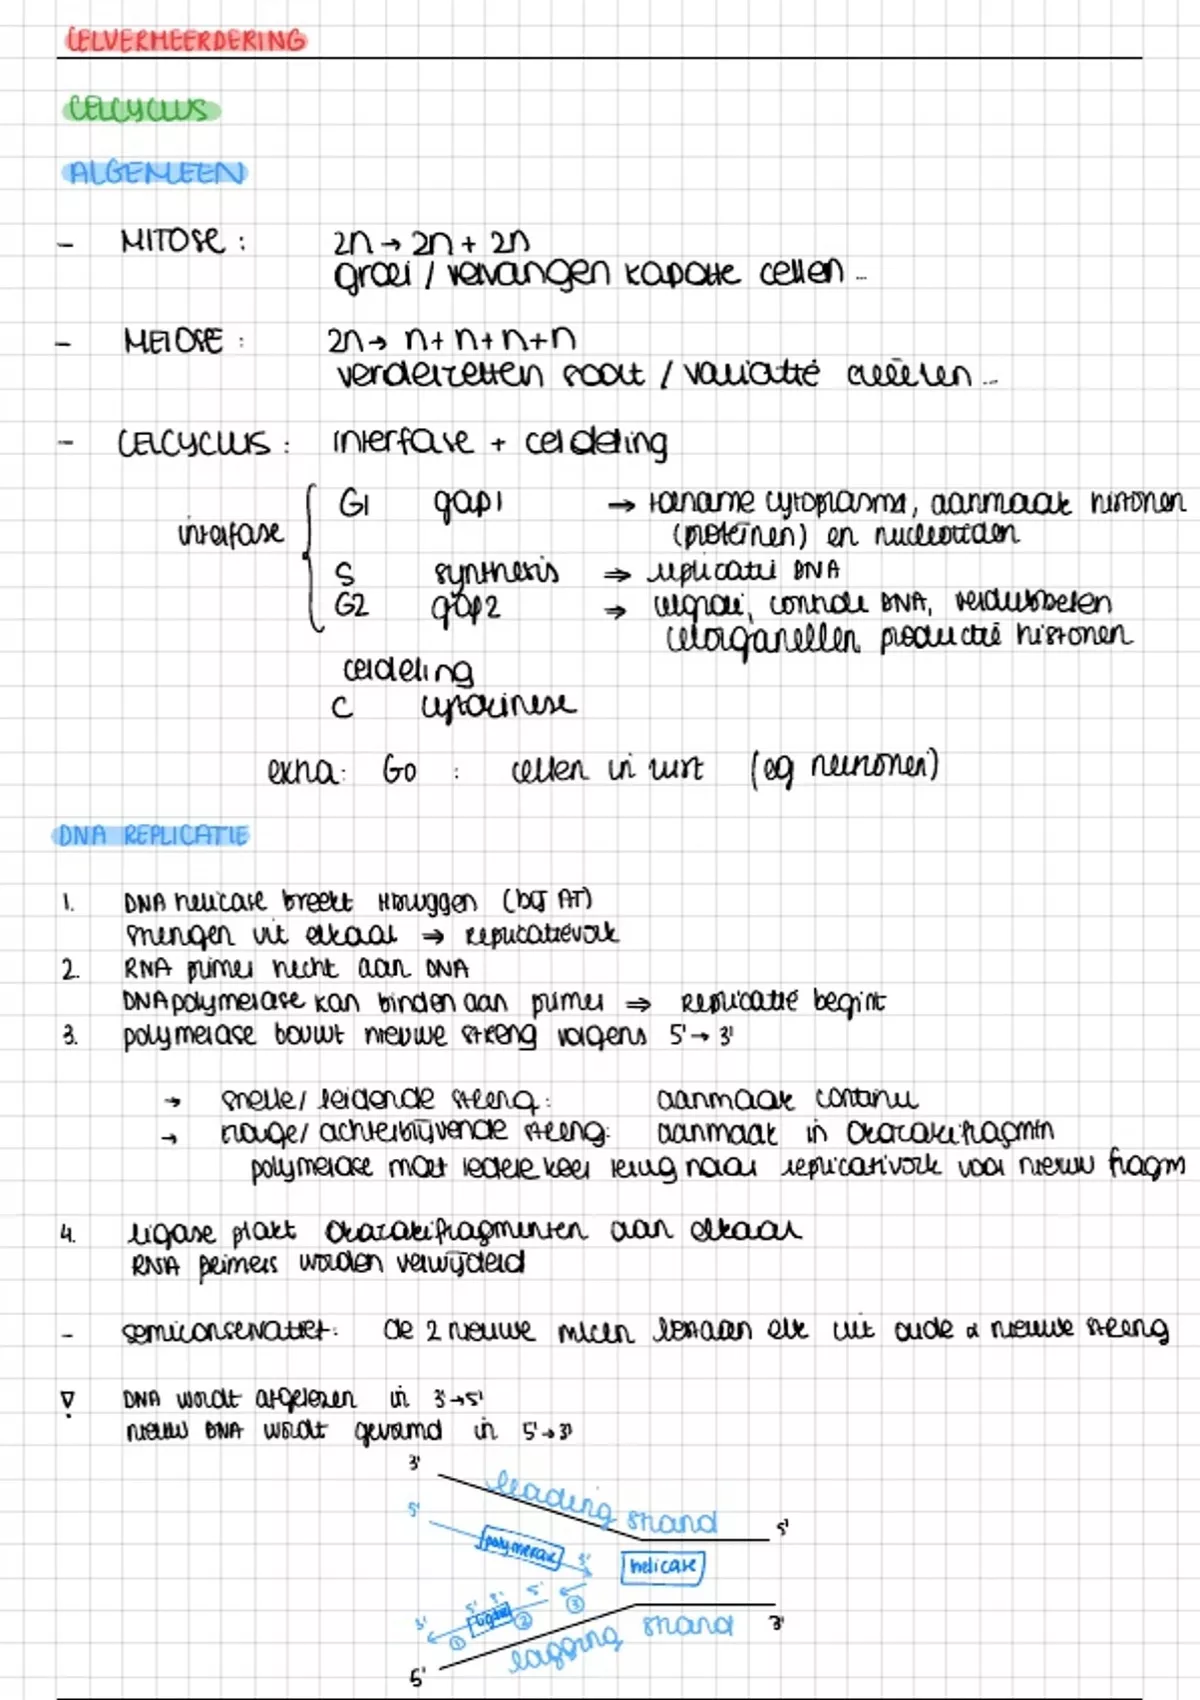 CELVERMEERDERING
CELCYCLUS
ALGEMEEN
- MITOSE : 2n → 2n + 2n
groei / vervangen kapotte cellen ...
- MEIOSE : 2n → n + n + n + n
verderzetten soort / variatie creëren ...
- CELCYCLUS : interfase + celdeling
interfase
G1 gap1 → toename cytoplasma, aanmaak histonen
(proteïnen) en nucleotiden
S synthesis ⇒ replicatie DNA
G2 gap2 ⇒ celgroei, controle DNA, verdubbelen
celorganellen productie histonen
celdeling
C cytokinese
extra: G0 : cellen in rust (eg neuronen)
DNA REPLICATIE
1. DNA helicase breekt H bruggen (bij AT)
strengen uit elkaar ⇒ replicatievork
2. RNA primer hecht aan DNA
DNA polymerase kan binden aan primer ⇒ replicatie begint
3. polymerase bouwt nieuwe streng volgens 5' → 3'
→ snelle / leidende streng: aanmaak continu
→ trage / achterblijvende streng: aanmaak in Okazakifragmtn
polymerase moet iedere keer terug naar replicatievork voor nieuw fragm
4. ligase plakt Okazakifragmenten aan elkaar
RNA primers worden verwijderd
- semiconservatief: de 2 nieuwe molcen bestaan elk uit oude & nieuwe streng
DNA wordt afgelezen in 3' → 5'
nieuw DNA wordt gevormd in 5' → 3'
3'
leading strand
5'
5'
polymerase
3'
helicase
3'
5'
3'
ligase
5'
1
2
3
lagging strand
3'
5'